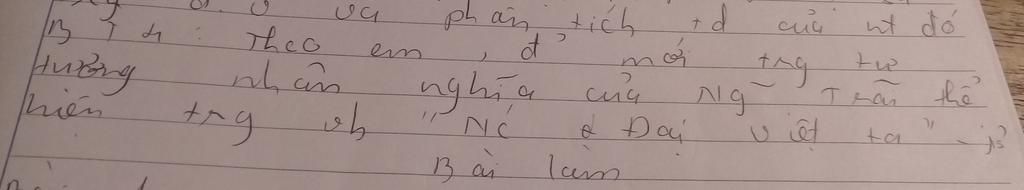 và phân tích td của nt đó
BTH: Theo em, đ' mới trg tư
tưởng nhân nghĩa của Ng~ Trãi thể
hiện trg vb "Nc Đại Việt ta" -
Bài làm